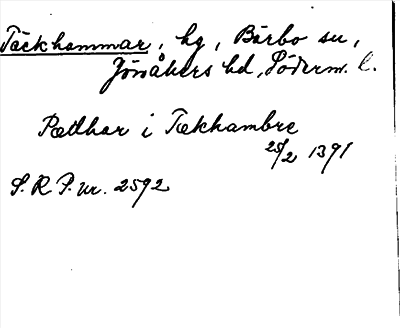 Täckhammar, hg, Bärbo sn,
Jönåkers hd, Söderm. l.
Pædhar i Tækhambre
25/2 1391
S.R.P. nr. 2592